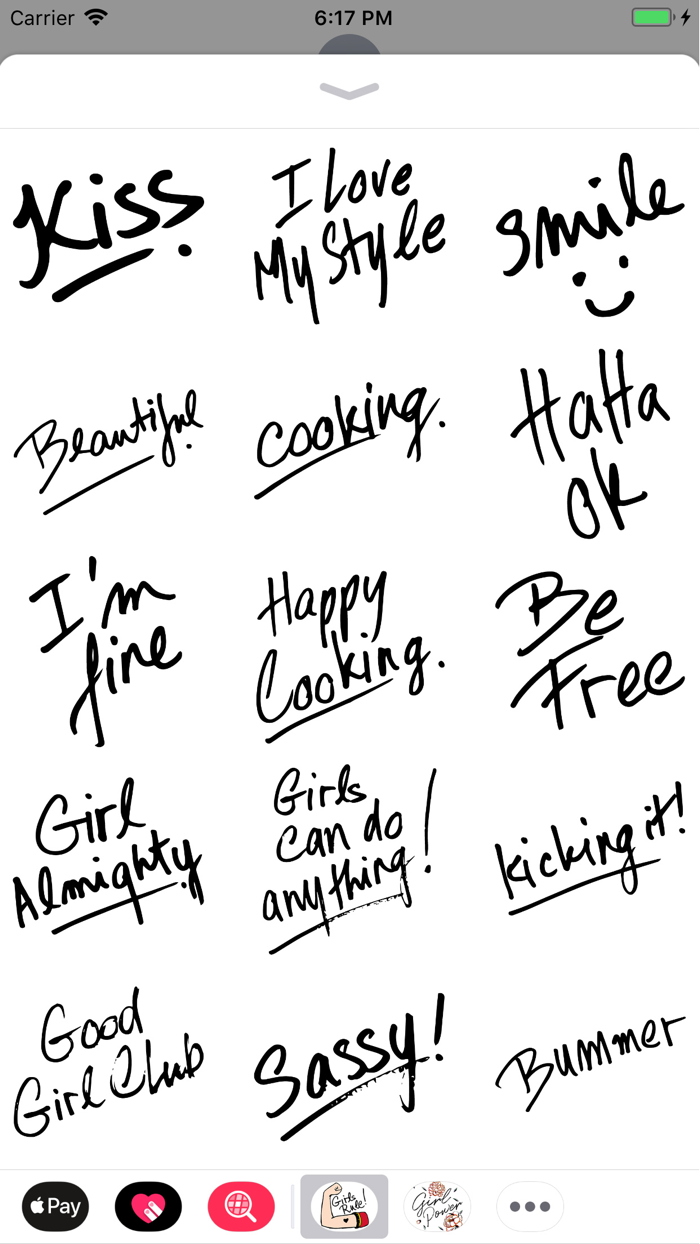 Carrier 6:17 PM
Kiss.
I Love
My Style
smile
Beautiful.
cooking.
HaHa
ok
I'm
fine
Happy
Cooking.
Be
Free
Girl
Almighty
Girls
can do
anything!
kicking it!
Good
Girl Club
Sassy!
Bummer
Pay
Girls
Rule!
Girl
Power